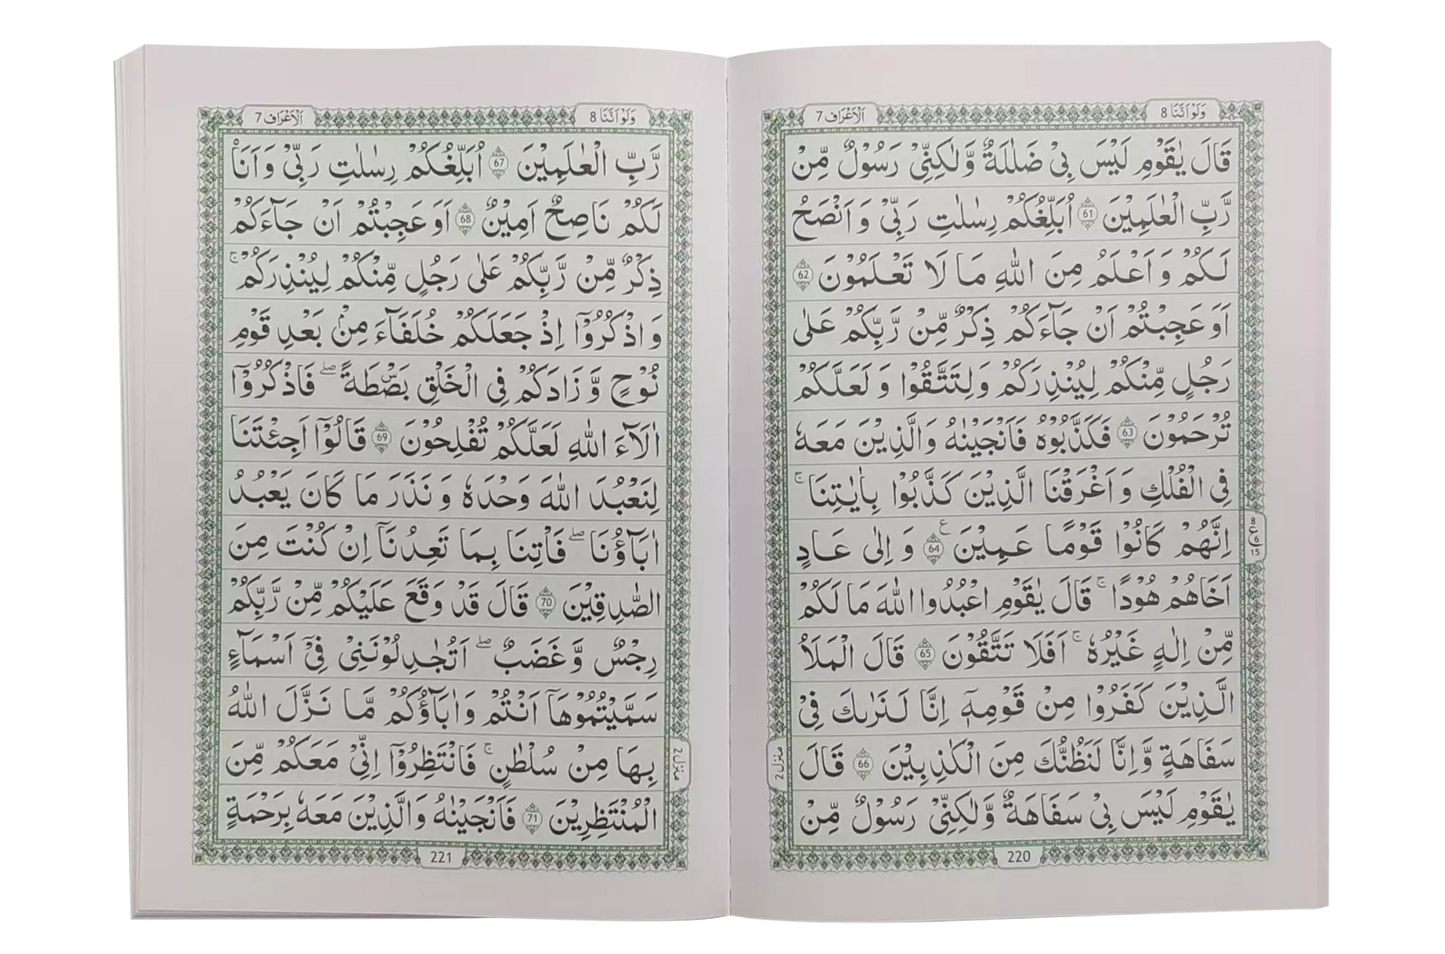 وَلَوْ اَنَّنَا 8
اَلْاَعْرَاف 7
قَالَ يٰقَوْمِ لَيْسَ بِيْ ضَلٰلَةٌ وَّلٰكِنِّيْ رَسُوْلٌ مِّنْ
رَّبِّ الْعٰلَمِيْنَ 61 اُبَلِّغُكُمْ رِسٰلٰتِ رَبِّيْ وَاَنْصَحُ
لَكُمْ وَاَعْلَمُ مِنَ اللّٰهِ مَا لَا تَعْلَمُوْنَ 62
اَوَعَجِبْتُمْ اَنْ جَآءَكُمْ ذِكْرٌ مِّنْ رَّبِّكُمْ عَلٰى
رَجُلٍ مِّنْكُمْ لِيُنْذِرَكُمْ وَلِتَتَّقُوْا وَلَعَلَّكُمْ
تُرْحَمُوْنَ 63 فَكَذَّبُوْهُ فَاَنْجَيْنٰهُ وَالَّذِيْنَ مَعَهٗ
فِي الْفُلْكِ وَاَغْرَقْنَا الَّذِيْنَ كَذَّبُوْا بِاٰيٰتِنَا ۚ
اِنَّهُمْ كَانُوْا قَوْمًا عَمِيْنَ 64 ع وَاِلٰى عَادٍ
8 ع 6 15
اَخَاهُمْ هُوْدًا ۚ قَالَ يٰقَوْمِ اعْبُدُوا اللّٰهَ مَا لَكُمْ
مِّنْ اِلٰهٍ غَيْرُهٗ ۚ اَفَلَا تَتَّقُوْنَ 65 قَالَ الْمَلَاُ
الَّذِيْنَ كَفَرُوْا مِنْ قَوْمِهٖٓ اِنَّا لَنَرٰىكَ فِيْ
سَفَاهَةٍ وَّاِنَّا لَنَظُنُّكَ مِنَ الْكٰذِبِيْنَ 66 قَالَ
منزل 2
يٰقَوْمِ لَيْسَ بِيْ سَفَاهَةٌ وَّلٰكِنِّيْ رَسُوْلٌ مِّنْ
220
وَلَوْ اَنَّنَا 8
اَلْاَعْرَاف 7
رَّبِّ الْعٰلَمِيْنَ 67 اُبَلِّغُكُمْ رِسٰلٰتِ رَبِّيْ وَاَنَا۠
لَكُمْ نَاصِحٌ اَمِيْنٌ 68 اَوَعَجِبْتُمْ اَنْ جَآءَكُمْ
ذِكْرٌ مِّنْ رَّبِّكُمْ عَلٰى رَجُلٍ مِّنْكُمْ لِيُنْذِرَكُمْ ۚ
وَاذْكُرُوْٓا اِذْ جَعَلَكُمْ خُلَفَآءَ مِنْۢ بَعْدِ قَوْمِ
نُوْحٍ وَّزَادَكُمْ فِي الْخَلْقِ بَصْۜطَةً ۖ فَاذْكُرُوْٓا
اٰلَآءَ اللّٰهِ لَعَلَّكُمْ تُفْلِحُوْنَ 69 قَالُوْٓا اَجِئْتَنَا
لِنَعْبُدَ اللّٰهَ وَحْدَهٗ وَنَذَرَ مَا كَانَ يَعْبُدُ
اٰبَآؤُنَا ۖ فَاْتِنَا بِمَا تَعِدُنَآ اِنْ كُنْتَ مِنَ
الصّٰدِقِيْنَ 70 قَالَ قَدْ وَقَعَ عَلَيْكُمْ مِّنْ رَّبِّكُمْ
رِجْسٌ وَّغَضَبٌ ۖ اَتُجَادِلُوْنَنِيْ فِيْٓ اَسْمَآءٍ
سَمَّيْتُمُوْهَآ اَنْتُمْ وَاٰبَآؤُكُمْ مَّا نَزَّلَ اللّٰهُ
بِهَا مِنْ سُلْطٰنٍ ۚ فَانْتَظِرُوْٓا اِنِّيْ مَعَكُمْ مِّنَ
منزل 2
الْمُنْتَظِرِيْنَ 71 فَاَنْجَيْنٰهُ وَالَّذِيْنَ مَعَهٗ بِرَحْمَةٍ
221